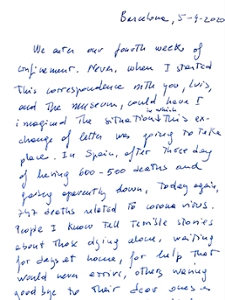 Barcelona, 5-4-2020
We are in our fourth week of
confinement. Never, when I started
this correspondence with you, Luis,
and the museum, could have I
imagined the situation in which this ex-
change of letter was going to take
place. In Spain, after three day
of having 600-500 deaths and
going aparently down, today again,
747 deaths related to corona virus.
People I know tell terrible stories
about those dying alone, waiting
for days at home, for help that
would never arrive, others waving
goodbye to their dear ones in